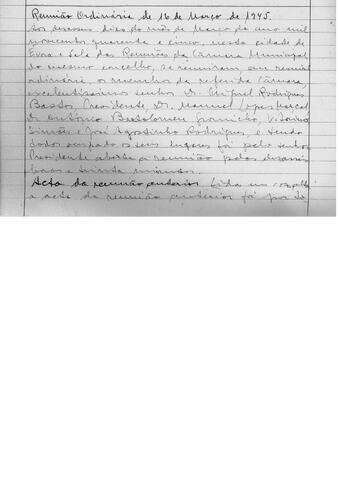 Reunião Ordinária de 16 de Março de 1945.
Aos dezasseis dias do mês de Março do ano mil
novecentos quarenta e cinco, nesta cidade de
Evora e Sala das Reuniões da Câmara Municipal
do mesmo concelho, se reuniram em sessão
ordinária, os membros da referida Câmara,
excelentissimos senhores Dr. Miguel Rodrigues
Bastos, Presidente, Dr. Manuel Lopes Marçal
Dr. António Bartolomeu Gromicho,
Simões e José Agostinho Rodrigues, e tendo
todos ocupado os seus lugares foi pelo senhor
Presidente aberta a reunião pelas
horas e trinta minutos.
Acta da reunião anterior Lida
a acta da reunião anterior foi por